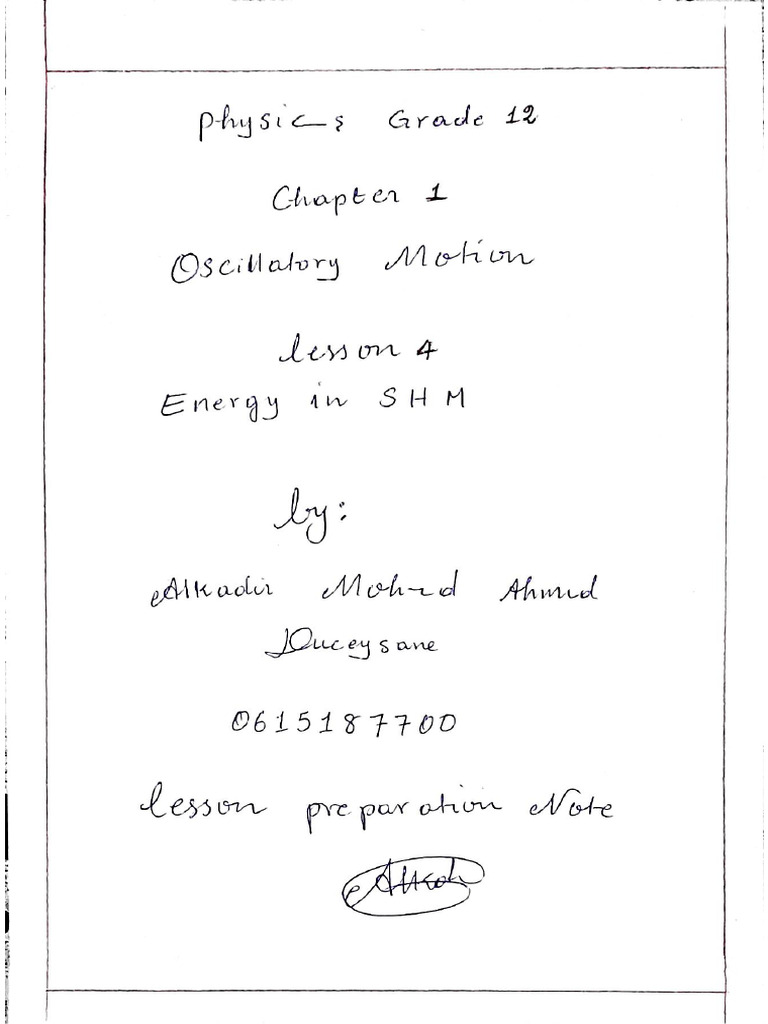 Physics Grade 12
Chapter 1
Oscillatory Motion
lesson 4
Energy in SHM
by:
Alkadir Mohd Ahmed
Duceysane
0615187700
lesson preparation Note